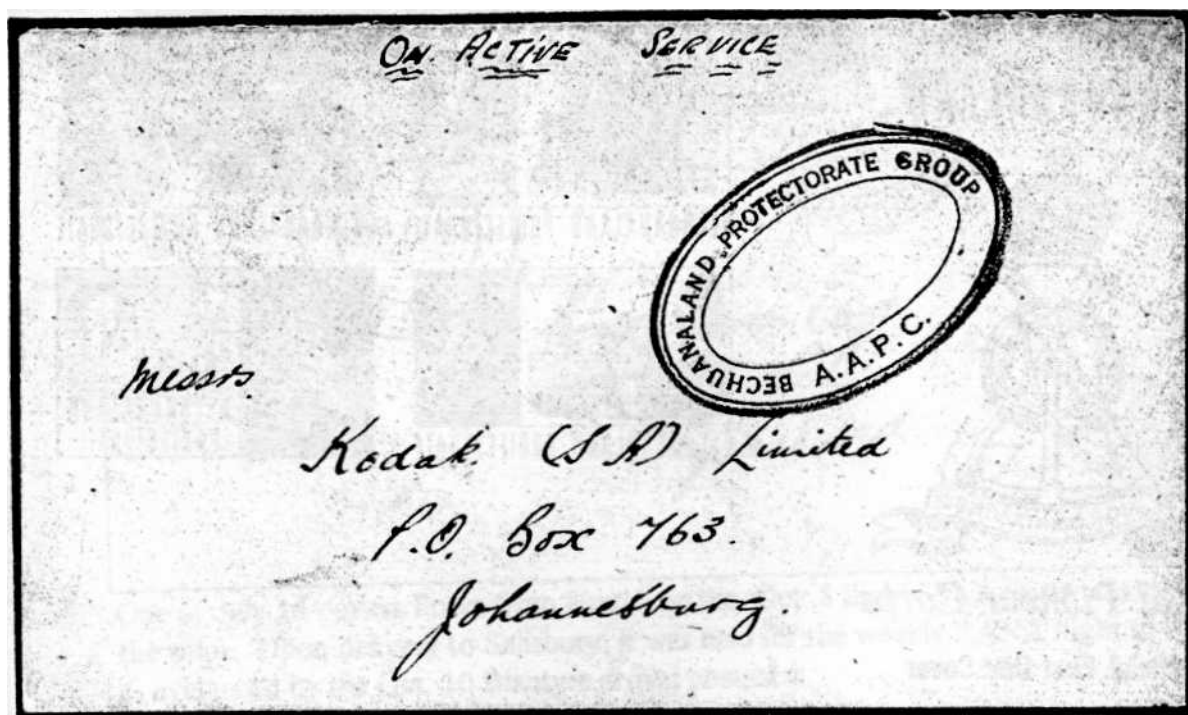 ON ACTIVE SERVICE
BECHUANALAND PROTECTORATE GROUP
A.A.P.C.
Messrs.
Kodak (S A) Limited
P.O. Box 763.
Johannesburg.